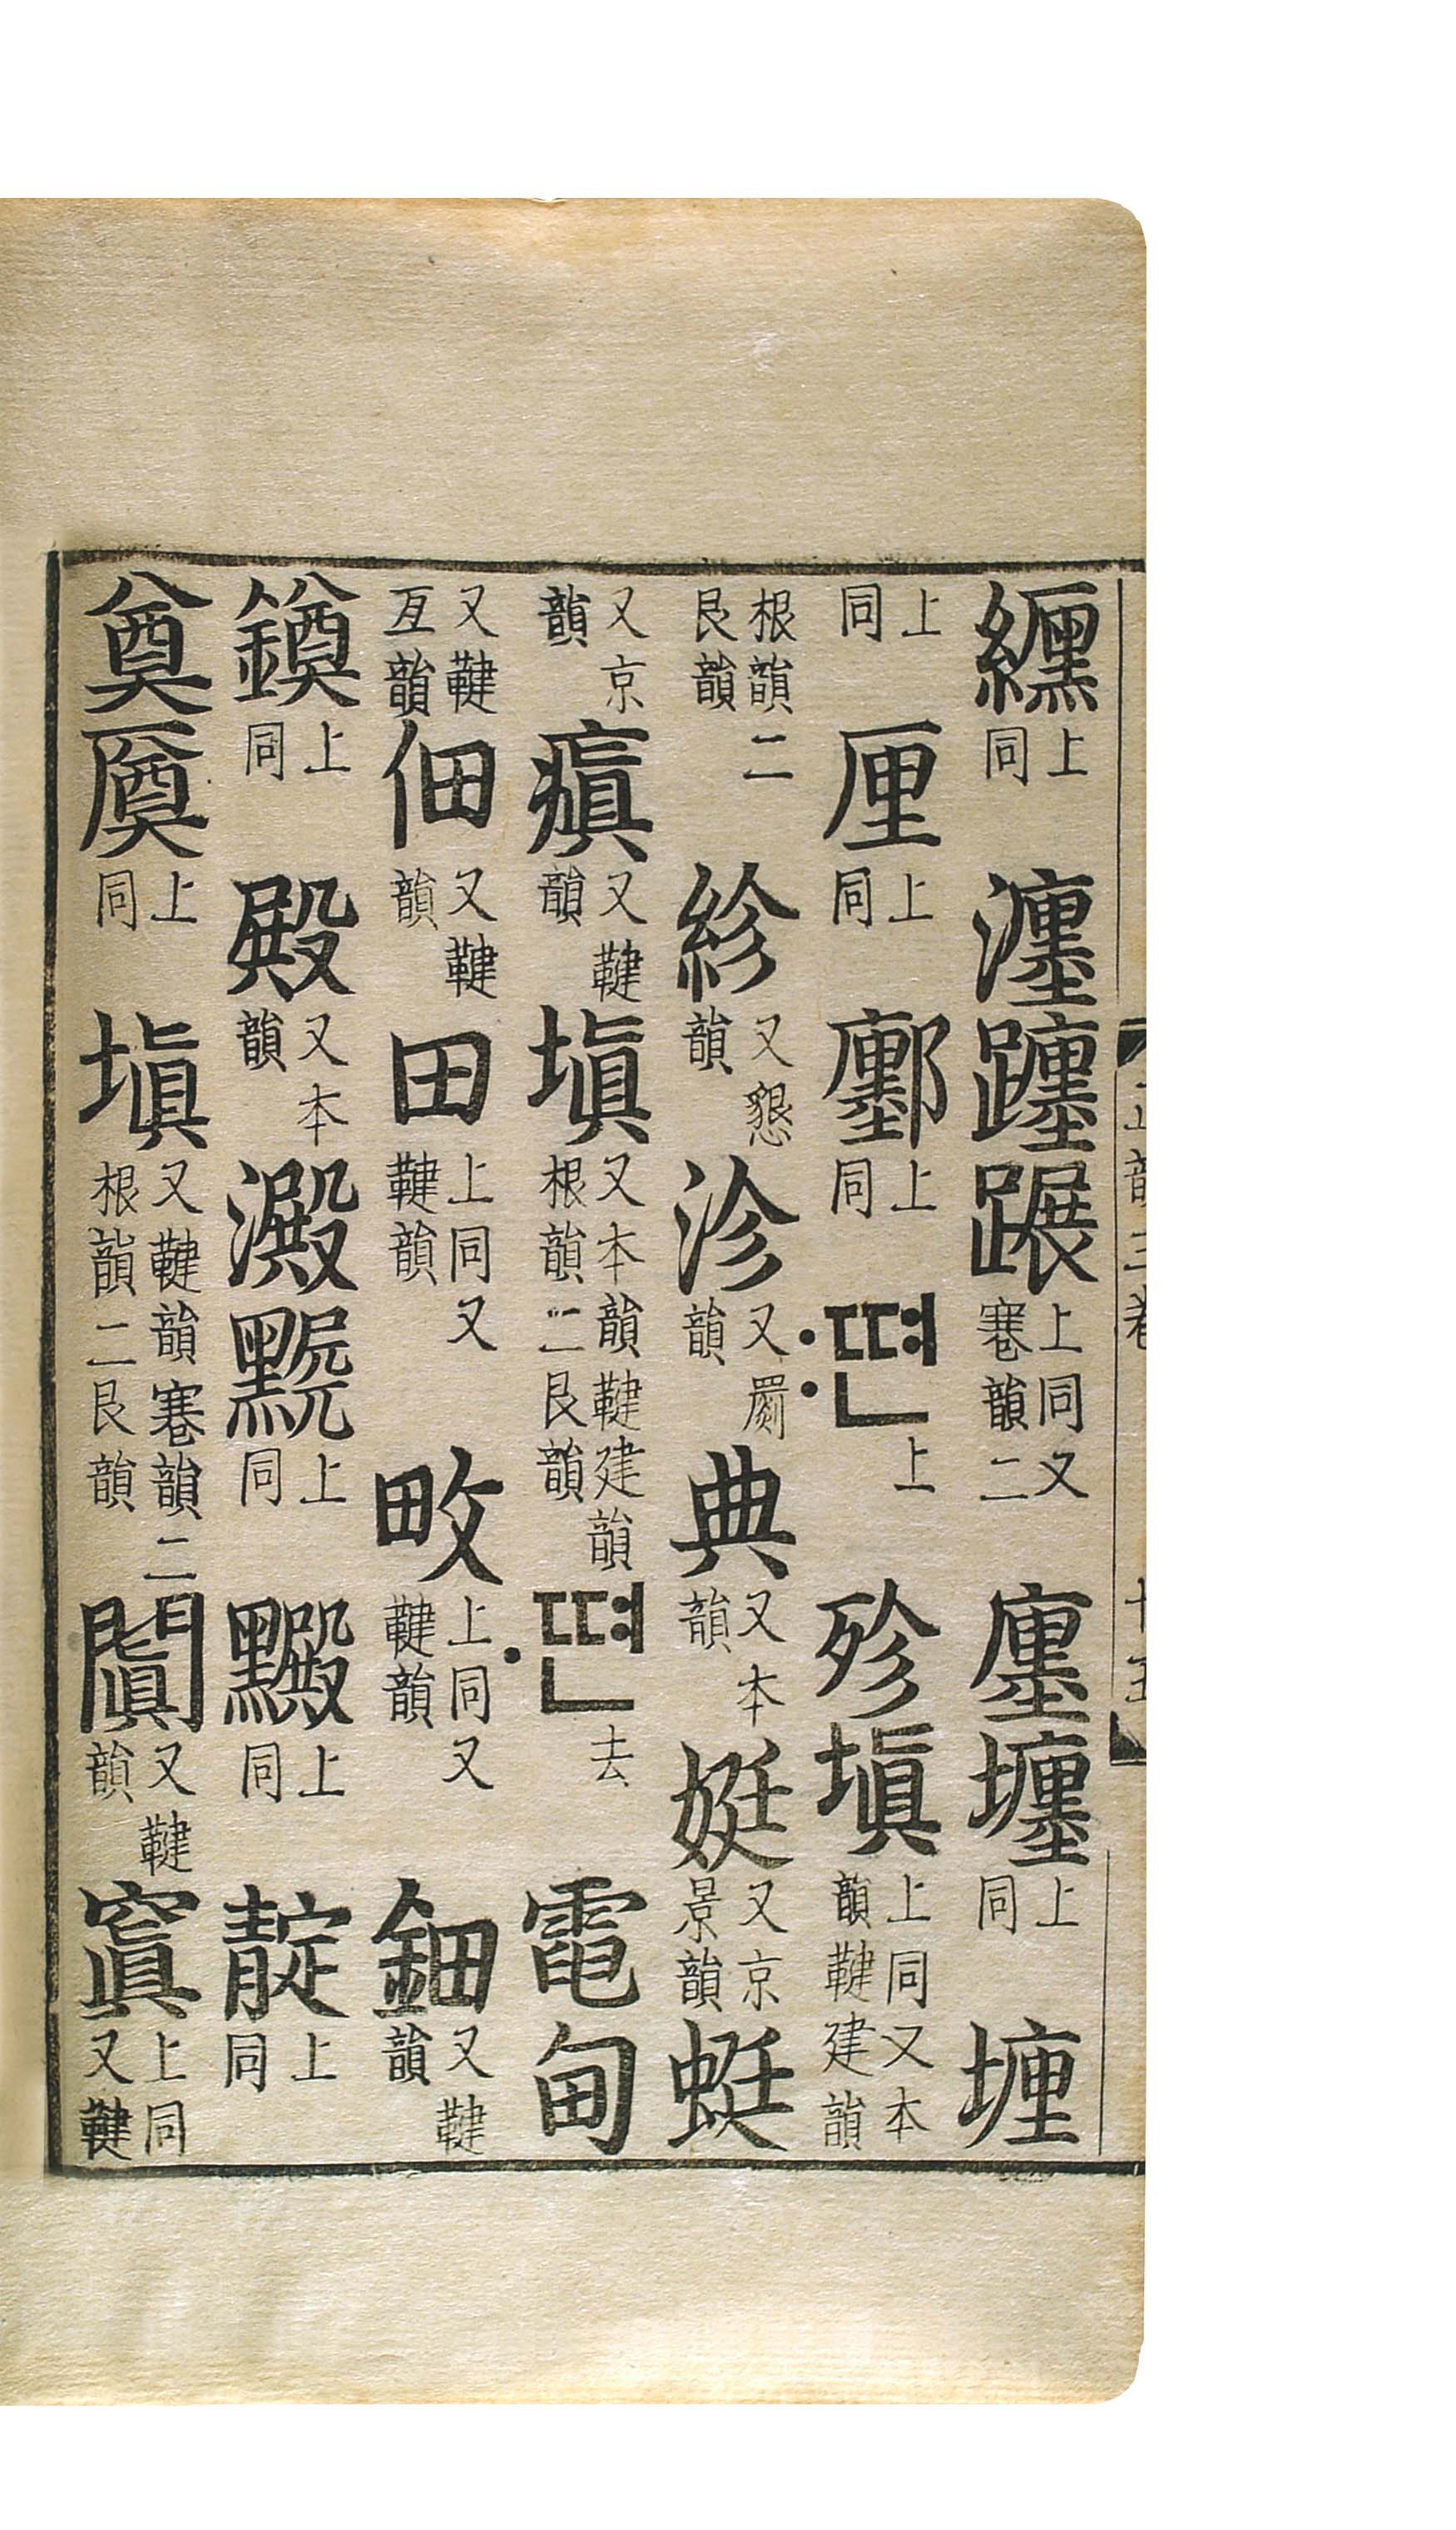 纒上同 瀍躔蹍上同又寋韻二 廛壥上同 㙻
上同 厘上同 鄽上同 〯뗜上 殄塡上同又本韻鞬建韻
根韻二艮韻 紾又懇韻 沴又罽韻 典又本韻 娗又京景韻 蜓
又京韻 瘨又鞬韻 塡又本韻鞬建韻根韻二艮韻 〮뗜去 電甸
又鞬亙韻 佃又鞬韻 田上同又鞬韻 畋上同又鞬韻 鈿又鞬韻
鐏上同 殿又本韻 澱黖上同 黰上同 靛上同
奠上同 塡又鞬韻寋韻二根韻二艮韻 闐又鞬韻 窴上同又鞬